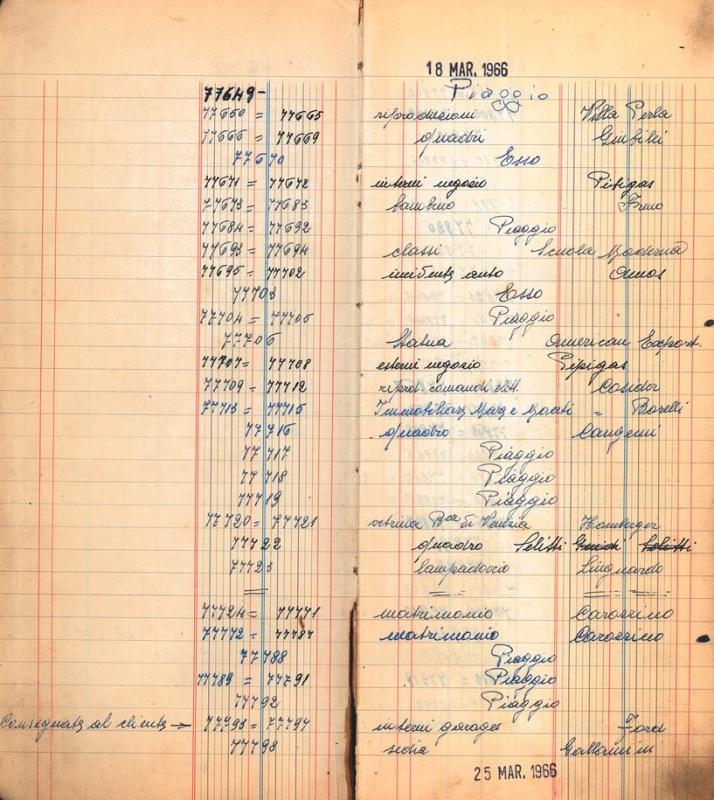 18 MAR. 1966
77649- Piaggio
77650 = 77665 riproduzioni Villa Perla
77666 = 77669 quadri
77670 Esso
77671 = 77672 interni negozio Pibigas
77673 = 77683 bambino
77684 = 77692 Piaggio
77693 = 77694 classi Scuola Moderna
77695 = 77702 incidente auto
77703 Esso
77704 = 77705 Piaggio
77706 Statua American Export.
77707 = 77708 esterni negozio Pipigas
77709 = 77712 riprod. comandi elett. Condor
77713 = 77715 Immobiliare = Borelli
77716 quadro Cangemi
77717 Piaggio
77718 Piaggio
77719 Piaggio
77720 = 77721 vetrina di Venezia Hamberger
77722 quadro
77723 lampadario Linguardo
77724 = 77771 matrimonio Carozzino
77772 = 77787 matrimonio Carozzino
77788 Piaggio
77789 = 77791 Piaggio
77792 Piaggio
Consegnate al cliente → 77793 = 77797 interni garages Ford
77798 sedia
25 MAR. 1966